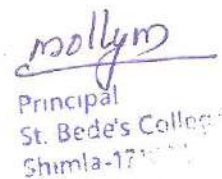 Mollym
Principal
St. Bede's College
Shimla-171